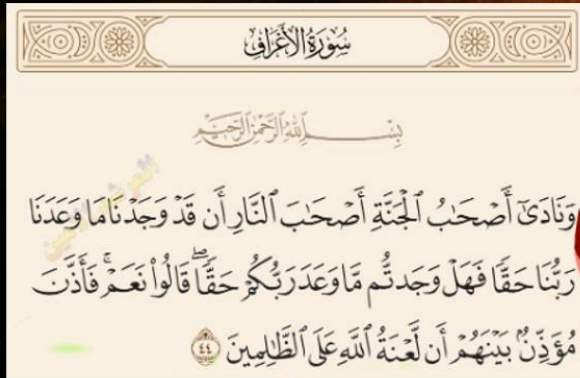 سُورَةُ الأَعْرَافِ
بِسْمِ ٱللَّهِ ٱلرَّحْمَٰنِ ٱلرَّحِيمِ
وَنَادَىٰٓ أَصْحَٰبُ ٱلْجَنَّةِ أَصْحَٰبَ ٱلنَّارِ أَن قَدْ وَجَدْنَا مَا وَعَدَنَا
رَبُّنَا حَقًّا فَهَلْ وَجَدتُّم مَّا وَعَدَ رَبُّكُمْ حَقًّاۖ قَالُوا۟ نَعَمْۚ فَأَذَّنَ
مُؤَذِّنٌۢ بَيْنَهُمْ أَن لَّعْنَةُ ٱللَّهِ عَلَى ٱلظَّٰلِمِينَ ٤٤